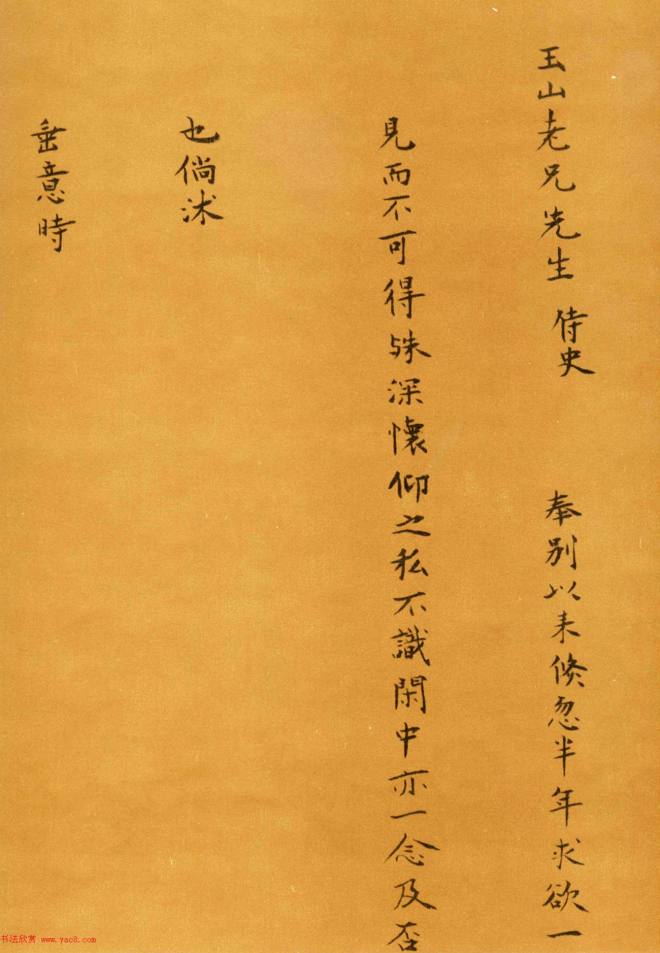 玉山老兄先生 侍史 奉別以来倏忽半年求欲一
見而不可得殊深懷仰之私不識閑中亦一念及否
也倘沐
垂意時
书法欣赏 www.yac8.com